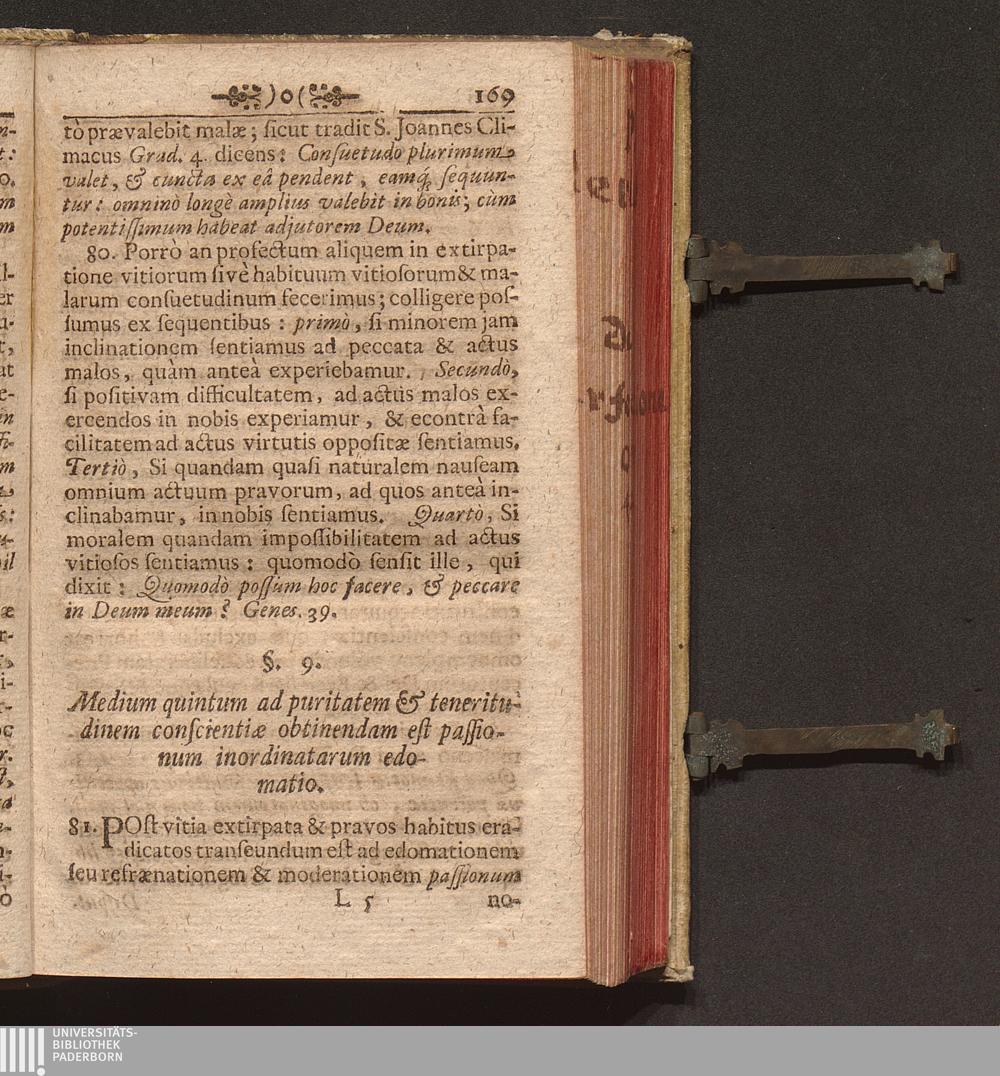 )o( 169
tò prævalebit malæ; ſicut tradit S. Joannes Cli-
macus Grad. 4. dicens: Conſuetudo plurimum
valet, & cuncta ex eâ pendent, eamq́; ſequun-
tur: omninò longè amplius valebit in bonis; cùm
potentiſſimum habeat adjutorem Deum.
80. Porrò an profectum aliquem in extirpa-
tione vitiorum ſivè habituum vitioſorum & ma-
larum conſuetudinum fecerimus; colligere poſ-
ſumus ex ſequentibus: primò, ſi minorem jam
inclinationem ſentiamus ad peccata & actus
malos, quàm anteà experiebamur. Secundò,
ſi poſitivam difficultatem, ad actus malos ex-
ercendos in nobis experiamur, & econtrà fa-
cilitatem ad actus virtutis oppoſitæ ſentiamus.
Tertiò, Si quandam quaſi naturalem nauſeam
omnium actuum pravorum, ad quos anteà in-
clinabamur, in nobis ſentiamus. Quartò, Si
moralem quandam impoſſibilitatem ad actus
vitioſos ſentiamus: quomodò ſenſit ille, qui
dixit: Quomodò poſſum hoc facere, & peccare
in Deum meum? Geneſ. 39.
§. 9.
Medium quintum ad puritatem & teneritu-
dinem conſcientiæ obtinendam eſt paſſio-
num inordinatarum edo-
matio.
81. POſt vitia extirpata & pravos habitus era-
dicatos tranſeundum eſt ad edomationem
ſeu refrænationem & moderationem paſſionum
L 5 no-
UNIVERSITÄTS-
BIBLIOTHEK
PADERBORN